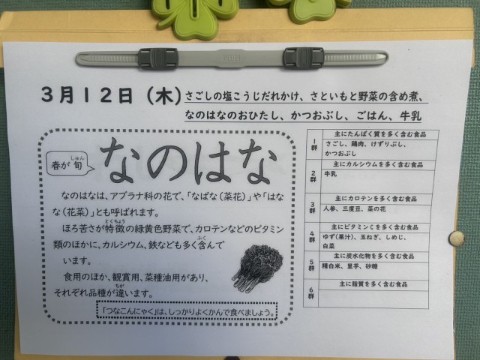 3月12日（木）さごしの塩こうじだれかけ、さといもと野菜の含め煮、
なのはなのおひたし、かつおぶし、ごはん、牛乳
春が旬
しゅん
なのはな
なのはなは、アブラナ科の花で、「なばな（菜花）」や「はな
な（花菜）」とも呼ばれます。
ほろ苦さが特徴の緑黄色野菜で、カロテンなどのビタミン
とくちょう
類のほかに、カルシウム、鉄なども多く含んで
ふく
います。
食用のほか、観賞用、菜種油用があり、
それぞれ品種が違います。
ちが
「つなこんにゃく」は、しっかりよくかんで食べましょう。
1群
主にたんぱく質を多く含む食品
さごし、鶏肉、けずりぶし、
かつおぶし
2群
主にカルシウムを多く含む食品
牛乳
3群
主にカロテンを多く含む食品
人参、三度豆、菜の花
4群
主にビタミンCを多く含む食品
ゆず（果汁）、玉ねぎ、しめじ、
白菜
5群
主に炭水化物を多く含む食品
精白米、里芋、砂糖
6群
主に脂質を多く含む食品